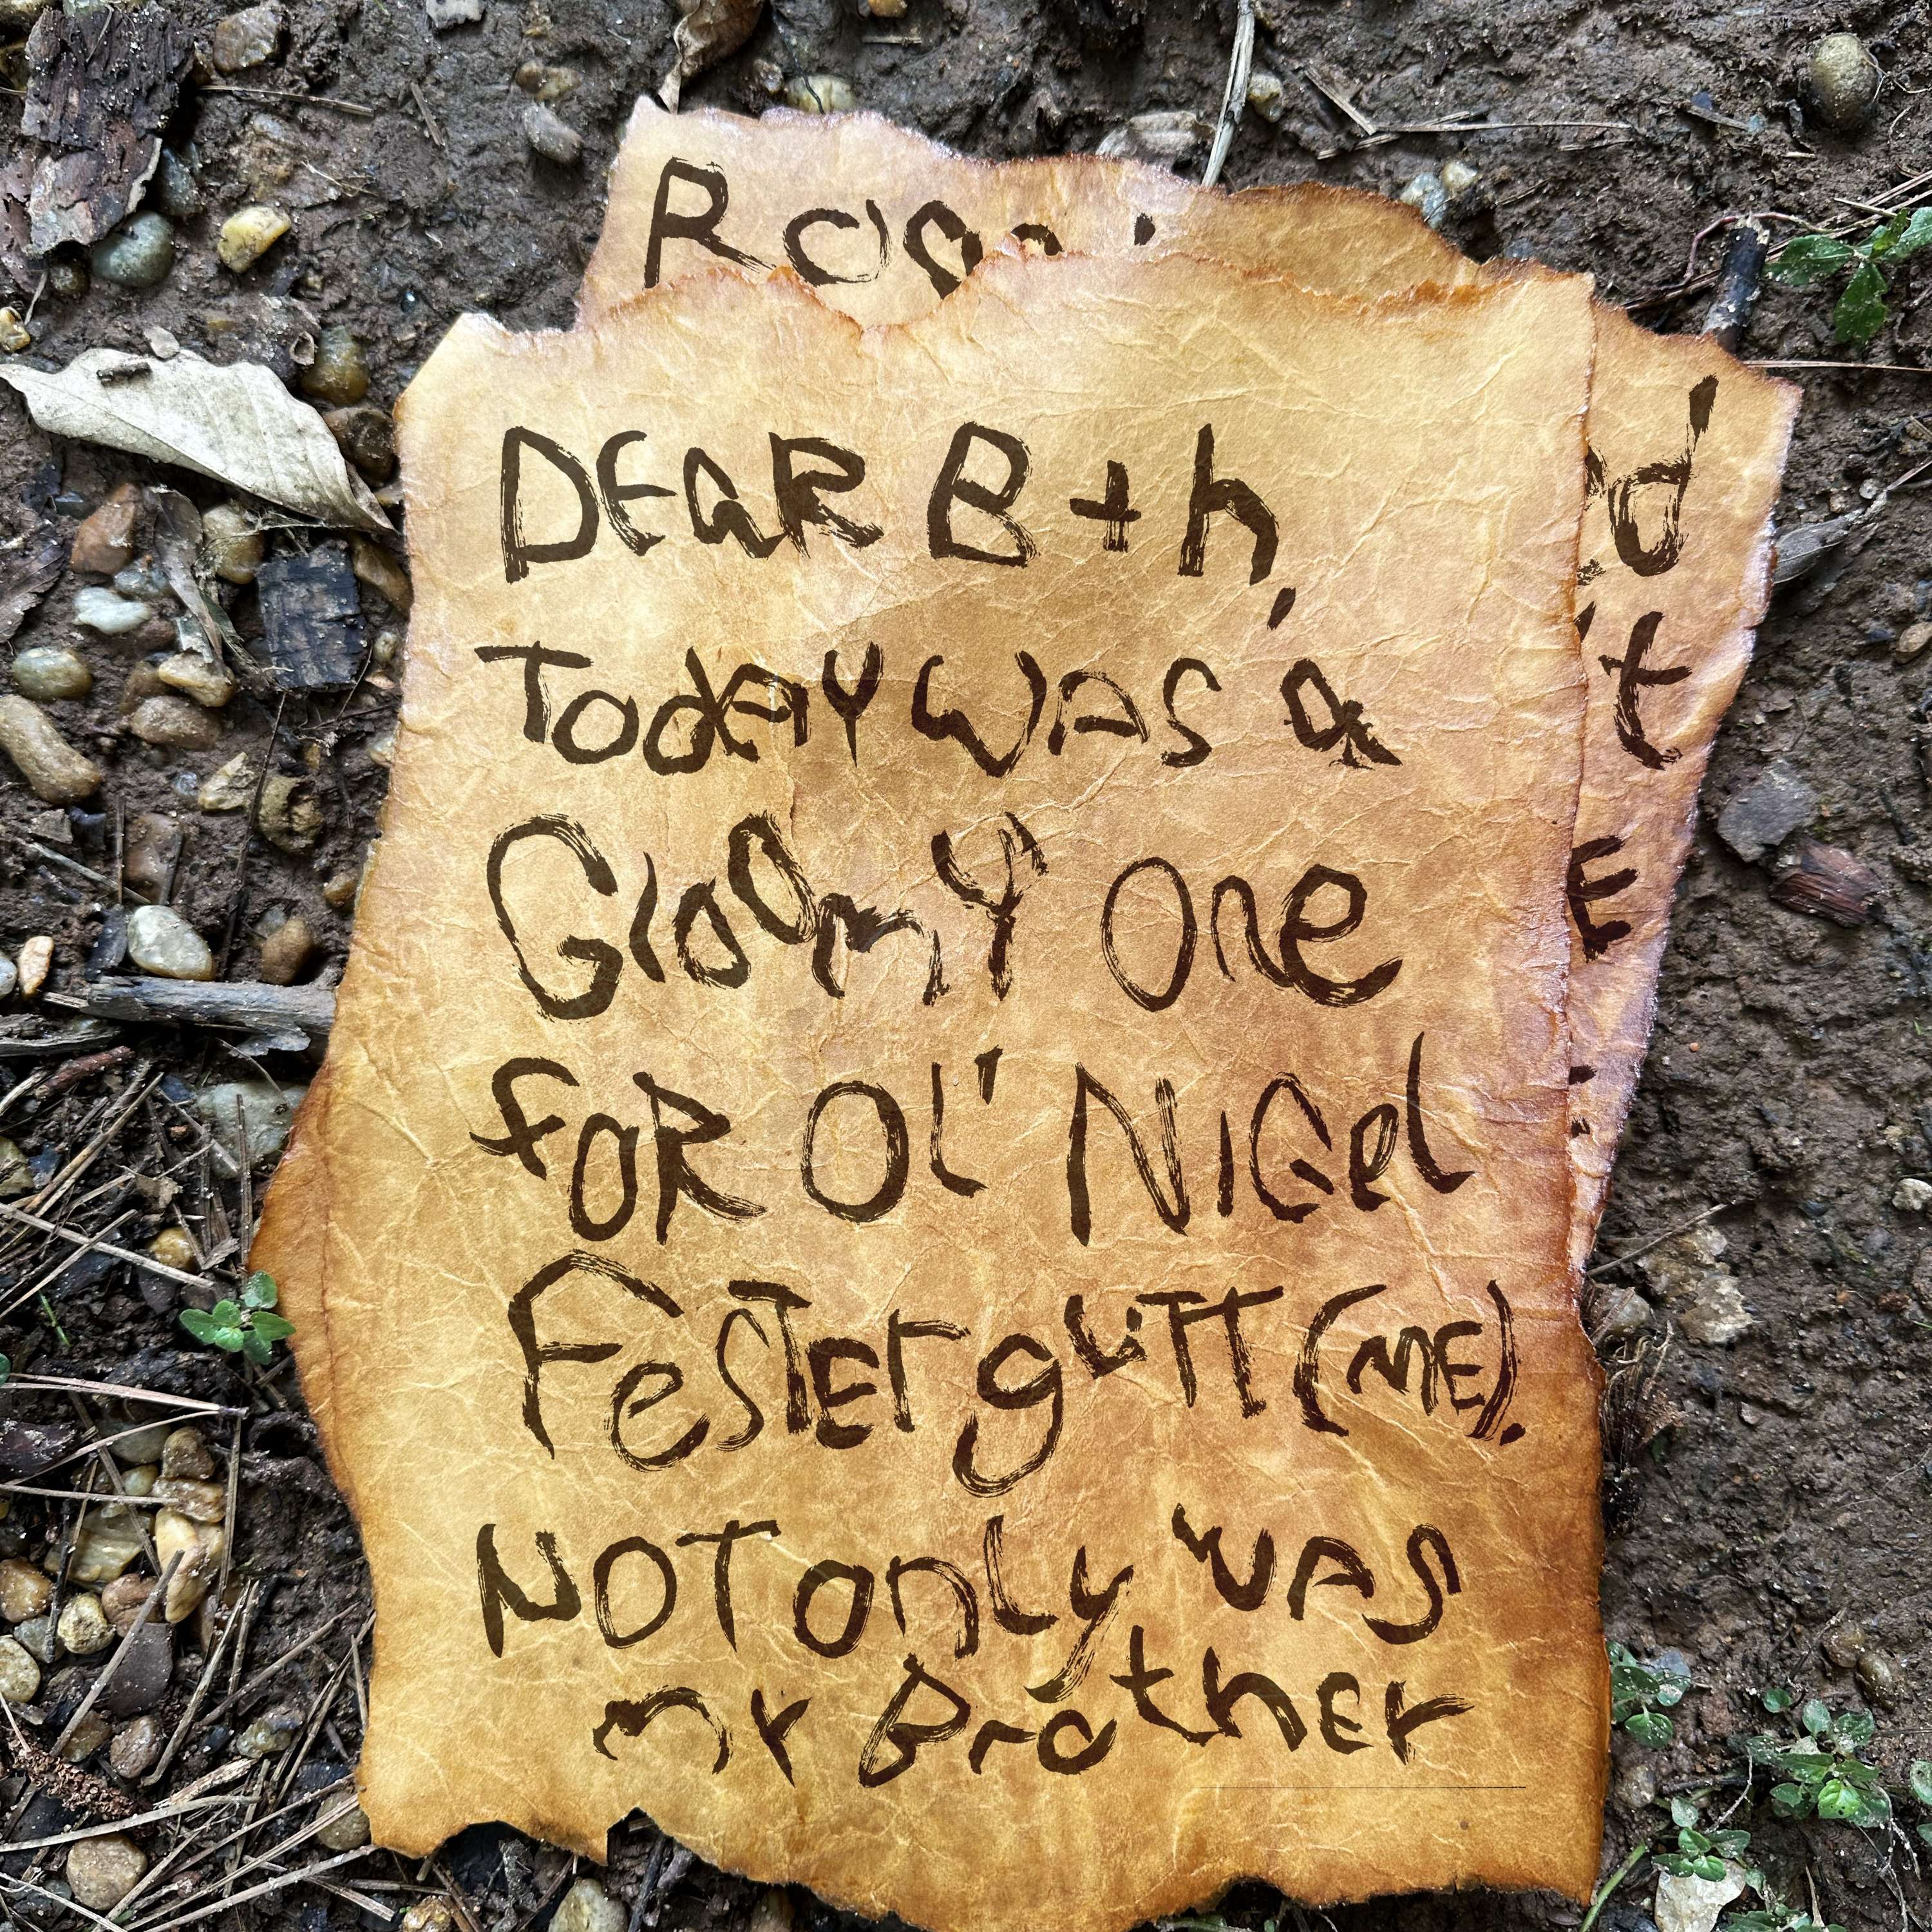 DEAR B+h,
Today was a
Gloomy One
for Ol' NiGel
FesTErguTT (ME).
NOT only was
my BrothEr